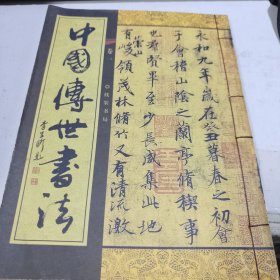 中國傳世書法
卷一
线装书局
永和九年歲在癸丑暮春之初會
于會稽山陰之蘭亭脩稧事
也羣賢畢至少長咸集此地
有崇山峻領茂林脩竹又有清流激